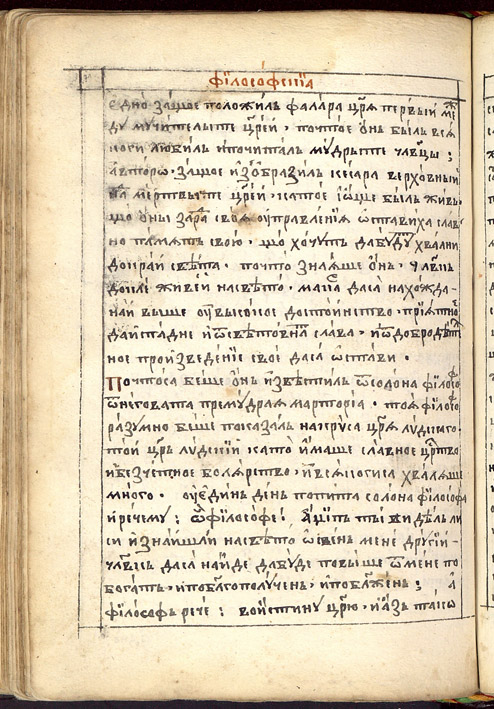 фїлосо́фенїа
едно защое положиль фалара цр҃я первый ме
ду мѹчителыте цр҃ей · почтое онь быль вся
коги любиль ипочиталь мѹдрыте чл҃вцы :
авторѡ · защое изобразиль кесара верховный
на мертвыте цр҃ей · като еѡще быль живь
що оны зара своя оуправленїя ѡставиха слав
но паматъ свою · що хочѹть дабѹдѹ хвални
докрай свѣта · почто знаяше онь · чл҃вкь
докле живей насвѣто · мала даса нахожда-
най выше оувысокое достоинство · прїатно
дайстадне иѡсвѣтовна слава · иѡдобродѣт
ное произведенїе свое даса ѡстави ·
Почтоса беше онь извѣстиль ѿсолона філосо
ѿнеговата премѹдрая марторїа · тоя філосо
разѹмно беше показаль накреѹса цр҃я лѵдїкаго ·
той цр҃ь лѹдскїй като имаше славное цр҃тво
ибезчетное болярство · ивсякогиса хваляше
много · оуединь день попита солона філософа
иречемѹ : ѽ філософе ! амить ты видѣль ли
си изнаишли насвѣто ѡсвень мене дрѹгїй
чл҃вкь даса найде дабѹде повыше ѿмене по
богать · ипоблагополѹчень · ипоблажень ; а
філософь рече : воистинѹ цр҃ю · иазь такѡ